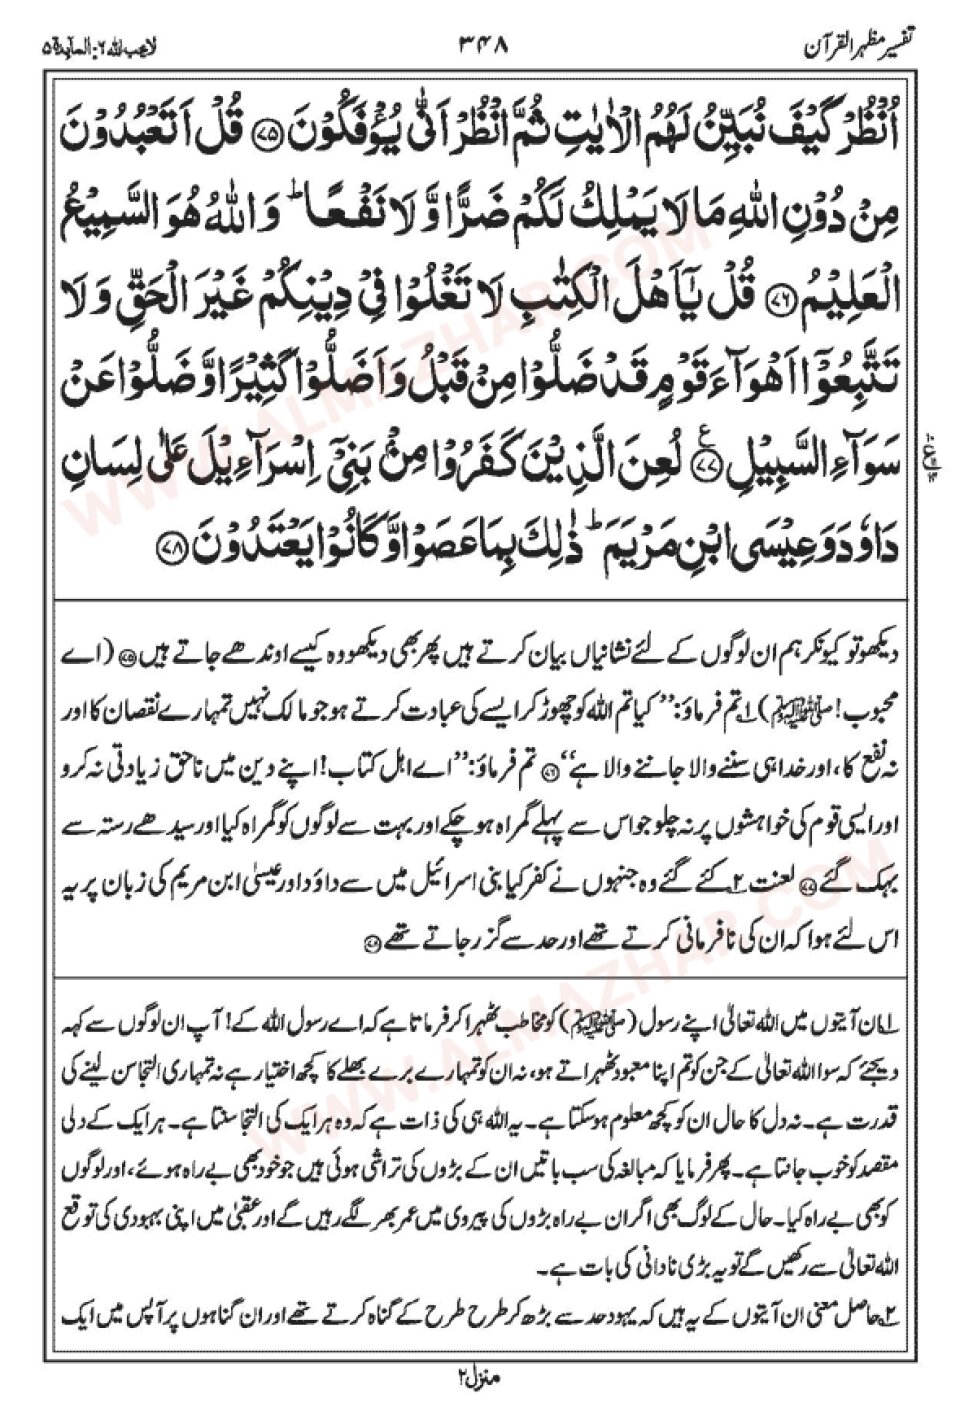 تفسیر مظہر القرآن ۳۴۸ لا یحب اللہ ۶: المآئدۃ ۵
اُنْظُرْ كَيْفَ نُبَيِّنُ لَهُمُ الْاٰيٰتِ ثُمَّ انْظُرْ اَنّٰى يُؤْفَكُوْنَ ﴿۷۵﴾ قُلْ اَتَعْبُدُوْنَ
مِنْ دُوْنِ اللّٰهِ مَا لَا يَمْلِكُ لَكُمْ ضَرًّا وَّلَا نَفْعًا ؕ وَاللّٰهُ هُوَ السَّمِيْعُ
الْعَلِيْمُ ﴿۷۶﴾ قُلْ يٰۤاَهْلَ الْكِتٰبِ لَا تَغْلُوْا فِيْ دِيْنِكُمْ غَيْرَ الْحَقِّ وَلَا
تَتَّبِعُوْۤا اَهْوَآءَ قَوْمٍ قَدْ ضَلُّوْا مِنْ قَبْلُ وَاَضَلُّوْا كَثِيْرًا وَّضَلُّوْا عَنْ
سَوَآءِ السَّبِيْلِ ﴿۷۷﴾ ع لُعِنَ الَّذِيْنَ كَفَرُوْا مِنْۢ بَنِيْۤ اِسْرَآءِيْلَ عَلٰى لِسَانِ
دَاوٗدَ وَعِيْسَى ابْنِ مَرْيَمَ ؕ ذٰلِكَ بِمَا عَصَوْا وَّكَانُوْا يَعْتَدُوْنَ ﴿۷۸﴾
دیکھو تو کیونکر ہم ان لوگوں کے لئے نشانیاں بیان کرتے ہیں پھر بھی دیکھو وہ کیسے اوندھے جاتے ہیں ﴿۷۵﴾ (اے
محبوب! ﷺ) ۱ تم فرماؤ: ’’کیا تم اللہ کو چھوڑ کر ایسے کی عبادت کرتے ہو جو مالک نہیں تمہارے نقصان کا اور
نہ نفع کا، اور خدا ہی سننے والا جاننے والا ہے‘‘ ﴿۷۶﴾ تم فرماؤ: ’’اے اہل کتاب! اپنے دین میں ناحق زیادتی نہ کرو
اور ایسی قوم کی خواہشوں پر نہ چلو جو اس سے پہلے گمراہ ہو چکے اور بہت سے لوگوں کو گمراہ کیا اور سیدھے رستہ سے
بہک گئے ﴿۷۷﴾ لعنت ۲ کئے گئے وہ جنہوں نے کفر کیا بنی اسرائیل میں سے داؤد اور عیسیٰ ابن مریم کی زبان پر یہ
اس لئے ہوا کہ ان کی نافرمانی کرتے تھے اور حد سے گزر جاتے تھے ﴿۷۸﴾
۱ ان آیتوں میں اللہ تعالیٰ اپنے رسول (ﷺ) کو مخاطب ٹھہرا کر فرماتا ہے کہ اے رسول اللہ کے! آپ ان لوگوں سے کہہ
دیجئے کہ سوا اللہ تعالیٰ کے جن کو تم اپنا معبود ٹھہراتے ہو، نہ ان کو تمہارے برے بھلے کا کچھ اختیار ہے نہ تمہاری التجا سن لینے کی
قدرت ہے۔ نہ دل کا حال ان کو کچھ معلوم ہو سکتا ہے۔ یہ اللہ ہی کی ذات ہے کہ وہ ہر ایک کی التجا سنتا ہے۔ ہر ایک کے دلی
مقصد کو خوب جانتا ہے۔ پھر فرمایا کہ مبالغہ کی سب باتیں ان کے بڑوں کی تراشی ہوئی ہیں جو خود بھی بے راہ ہوئے، اور لوگوں
کو بھی بے راہ کیا۔ حال کے لوگ بھی اگر ان بے راہ بڑوں کی پیروی میں عمر بھر لگے رہیں گے اور عقبیٰ میں اپنی بہبودی کی توقع
اللہ تعالیٰ سے رکھیں گے تو یہ بڑی نادانی کی بات ہے۔
۲ حاصل معنی ان آیتوں کے یہ ہیں کہ یہود حد سے بڑھ کر طرح طرح کے گناہ کرتے تھے اور ان گناہوں پر آپس میں ایک
منزل ۲
WWW.ALMAZHAR.COM
WWW.ALMAZHAR.COM